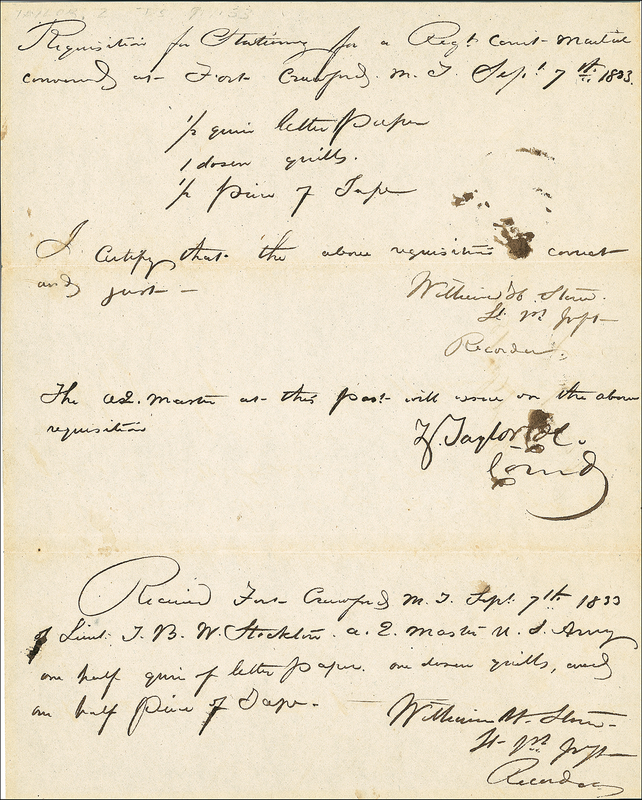 Requisition for Stationery for a Regt. Court-Martial
convened at Fort Crawford M. T. Sept. 7th 1833.
1/2 quire letter Paper
1 dozen quills.
1/2 Piece of Tape
I Certify that the above requisition is correct
and just -
William H. Storer.
Lt. 1st Infty
Recorder.
The a 2. Master at this post will issue on the above
requisition
Z. Taylor Col.
Comd
Received Fort Crawford M. T. Sept. 7th 1833
of Lieut. T. B. W. Stockton. a. 2. Master U. S. Army
one half quire of letter Paper. one dozen quills, and
one half Piece of Tape. -
William H. Storer
Lt. 1st Infty
Recorder